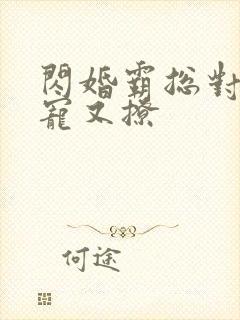 閃婚霸総對
寵又撩
何途